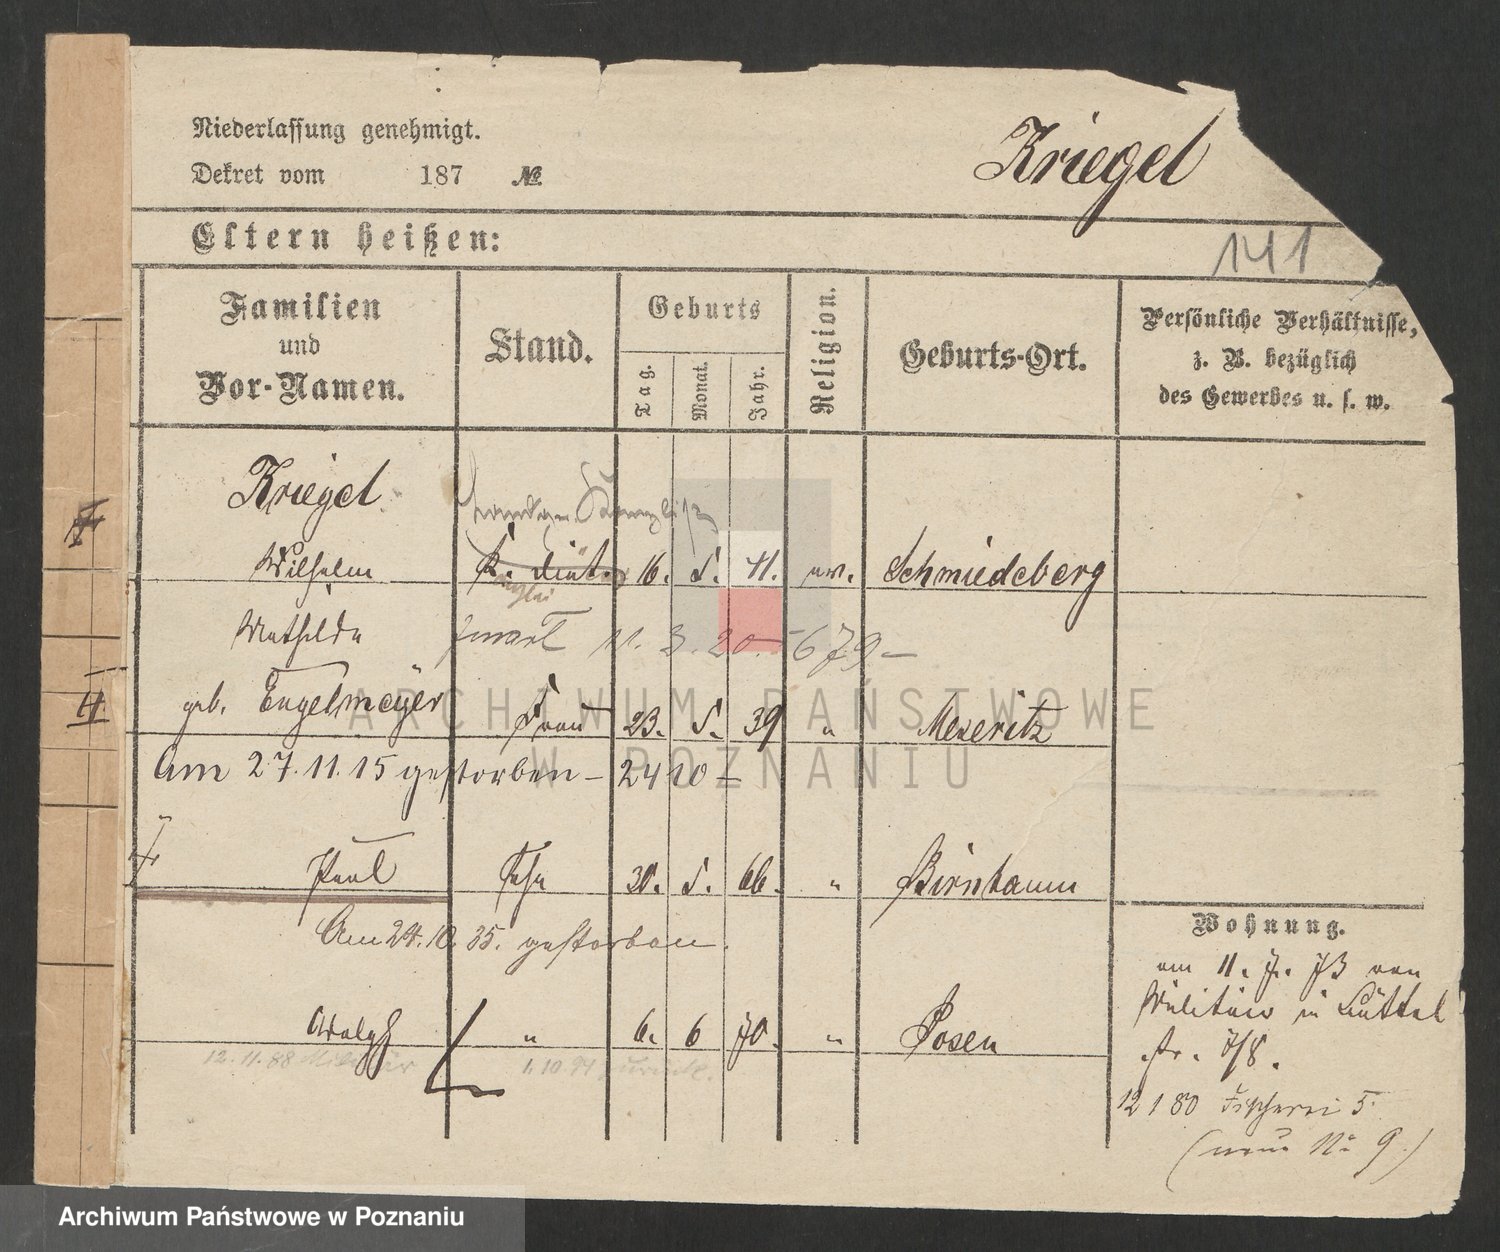 Niederlassung genehmigt.
Dekret vom 187 №
Kriegel
141
Eltern heißen:
Familien und Vor-Namen.
Stand.
Geburts
Tag. Monat. Jahr.
Religion.
Geburts-Ort.
Persönliche Verhältnisse,
z. B. bezüglich
des Gewerbes u. s. w.
Kriegel
Wilhelm 16. 5. 41. ev. Schmiedeberg
Mathilde 11. 3. 20. 679
geb. Engelmeyer Frau 23. 5. 39 " Meseritz
Am 27.11.15 gestorben – 2410 –
Paul Sohn 30. 5. 66. " Birnbaum
Am 24.10.35. gestorben.
Adolph " 6. 6 70. " Posen
12.11.88 Militär 1.10.91 zurück.
Wohnung.
am 11. 7. 73 von
Militär in
str. 7/8.
12 1 80 Fischerei 5
(neue No 9.)
II
ARCHIWUM PAŃSTWOWE
W POZNANIU
Archiwum Państwowe w Poznaniu